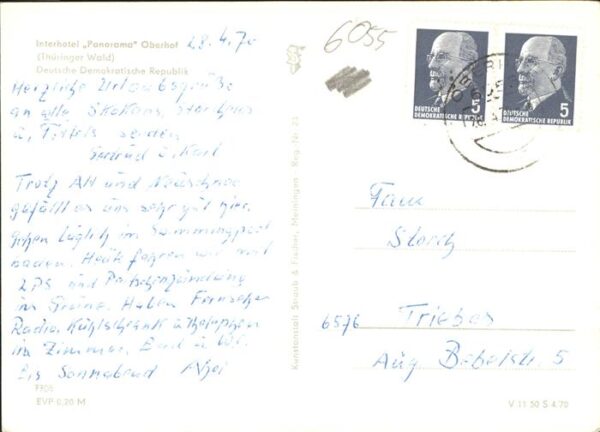 Interhotel „Panorama" Oberhof
(Thüringer Wald)
Deutsche Demokratische Republik
28.4.70
Herzliche Urlaubsgrüße
an alle
u. senden
Gertrud u. Karl
Trotz Alt und Neuschnee
gefällt es uns sehr gut hier.
Gehen täglich im Swimmingpool
baden. Heute fahren wir mit
2 PS und
ins Grüne. Haben Fernseher
Radio Kühlschrank u.
im Zimmer, Bad u. WC.
Bis Sonnabend
F306
EVP 0,20 M
Kunstanstalt Straub & Fischer, Meiningen Reg. Nr. 23
6055
DEUTSCHE
DEMOKRATISCHE REPUBLIK
5
DEUTSCHE
DEMOKRATISCHE REPUBLIK
5
OBERHOF
Frau
Storch
6576 Triebes
Aug. Bebelstr. 5
V 11 50 S 4.70